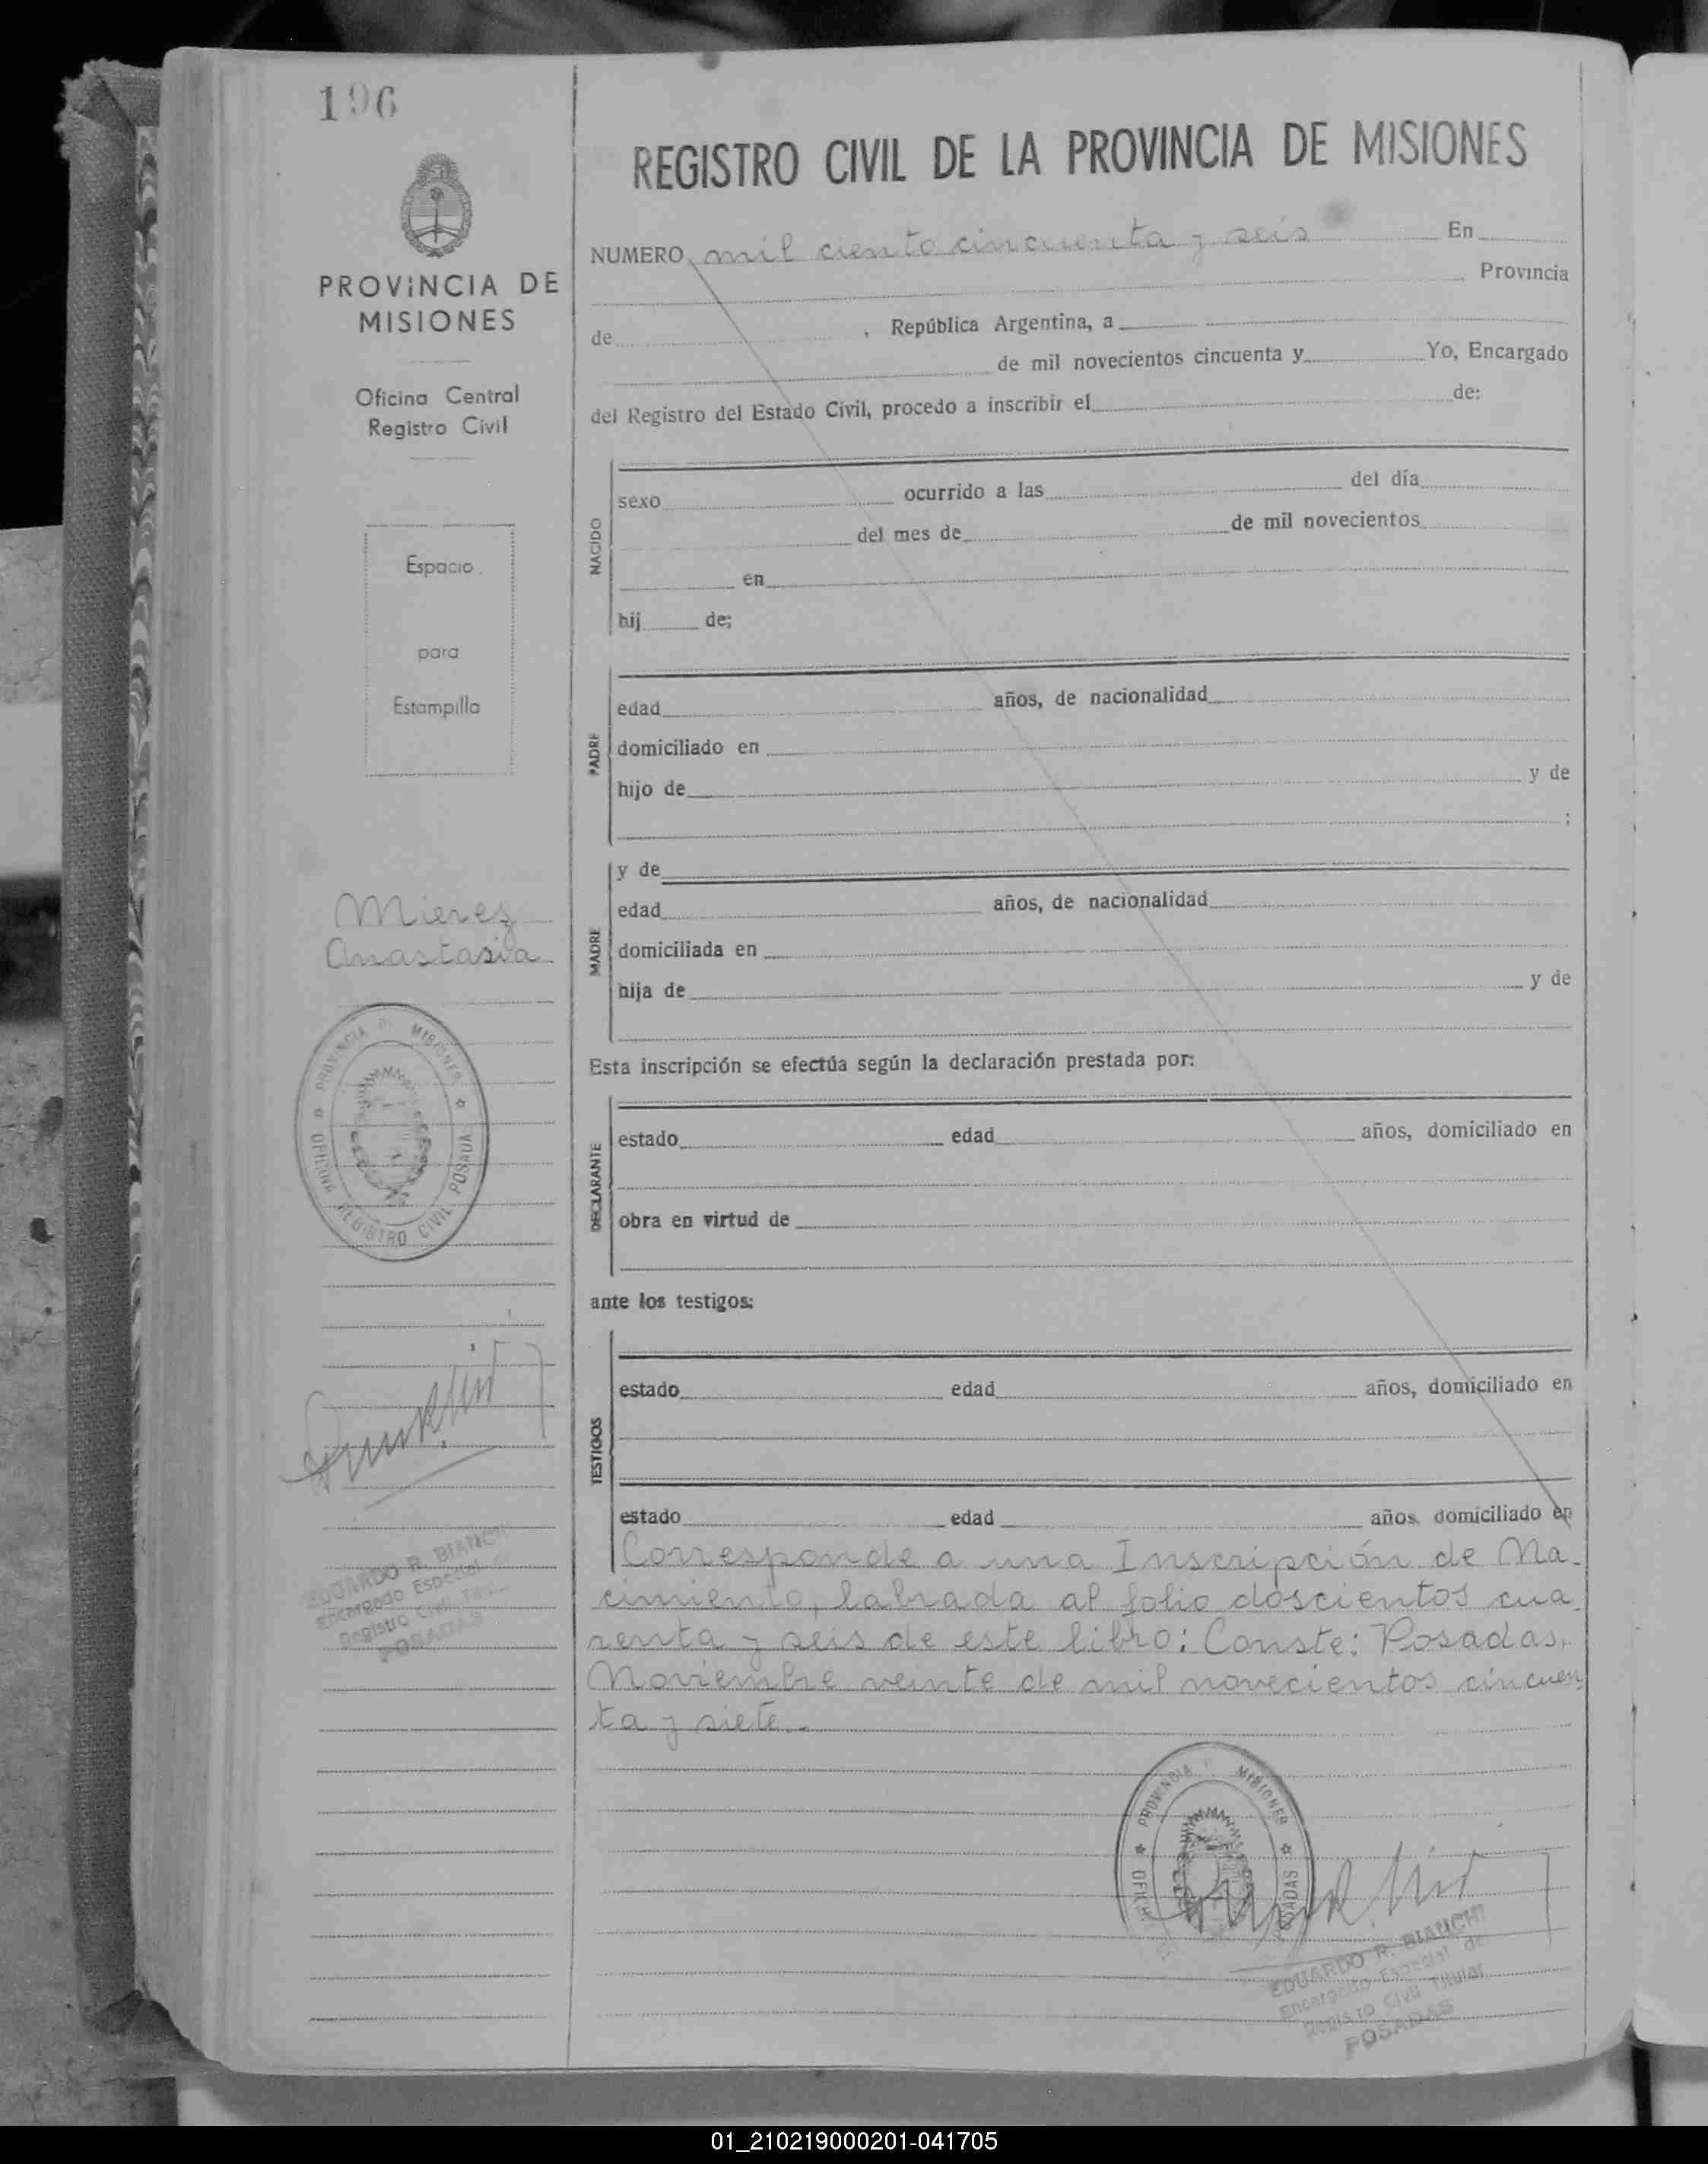 196
PROVINCIA DE
MISIONES
Oficina Central
Registro Civil
Espacio
para
Estampilla
Mierez
Anastasia
PROVINCIA D. MISIONES
OFICINA REGISTRO CIVIL POSADA
EDUARDO R. BIANCHI
Encargado Especial
Registro Civil
POSADAS
REGISTRO CIVIL DE LA PROVINCIA DE MISIONES
NUMERO mil ciento cincuenta y seis En
Provincia
de , República Argentina, a
de mil novecientos cincuenta y Yo, Encargado
del Registro del Estado Civil, procedo a inscribir el de:
NACIDO
sexo ocurrido a las del día
del mes de de mil novecientos
en
hij de;
PADRE
edad años, de nacionalidad
domiciliado en
hijo de y de
;
MADRE
y de
edad años, de nacionalidad
domiciliada en
hija de y de
Esta inscripción se efectúa según la declaración prestada por:
DECLARANTE
estado edad años, domiciliado en
obra en virtud de
ante los testigos:
TESTIGOS
estado edad años, domiciliado en
estado edad años, domiciliado en
Corresponde a una Inscripción de Na-
cimiento, labrada al folio doscientos cua-
renta y seis de este libro: Conste: Posadas,
Noviembre veinte de mil novecientos cincuen
ta y siete.-
PROVINCIA D. MISIONES
POSADAS
EDUARDO R. BIANCHI
Encargado Especial del
Registro Civil Titular
POSADAS
01_210219000201-041705